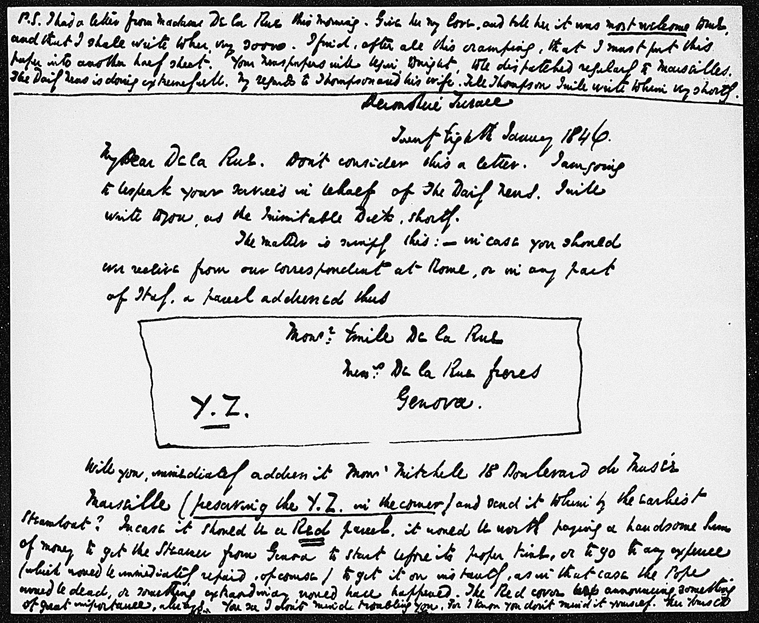 P.S. I had a letter from Madame De la Rue this morning. Give her my love, and tell her it was most welcome
and that I shall write to her, very soon. I find, after all this cramping, that I must put this
paper into another half sheet. Your newspapers will begin tonight. To be dispatched regularly to Marseilles.
The Daily News is doing extremely well. My regards to Thompson and his wife. Tell Thompson I will write to him very shortly.
Devonshire Terrace
Twenty Eighth January 1846.
My Dear De la Rue. Don't consider this a letter. I am going
to bespeak your services in behalf of The Daily News. I will
write to you, as the Inimitable Dick, shortly.
The matter is simply this: — in case you should
ever receive from our correspondent at Rome, or in any part
of Italy, a parcel addressed thus
Monsr. Emile De la Rue
Messrs. De la Rue freres
Genova.
Y.Z.
Will you, immediately address it Monsr Mitchell 18 Boulevard du Musée
Marseille (preserving the Y.Z. in the corner) and send it to him by the earliest
Steamboat? In case it should be a Red parcel, it would be worth paying a handsome sum
of money to get the Steamer from Genoa to start before its proper time, or to go to any expence
(which would be immediately repaid, of course) to get it on instantly, as in that case the Pope
would be dead, or something extraordinary would have happened. The Red cover announcing something
of great importance, always. You see I don't mind troubling you, for I know you don't mind it yourself.